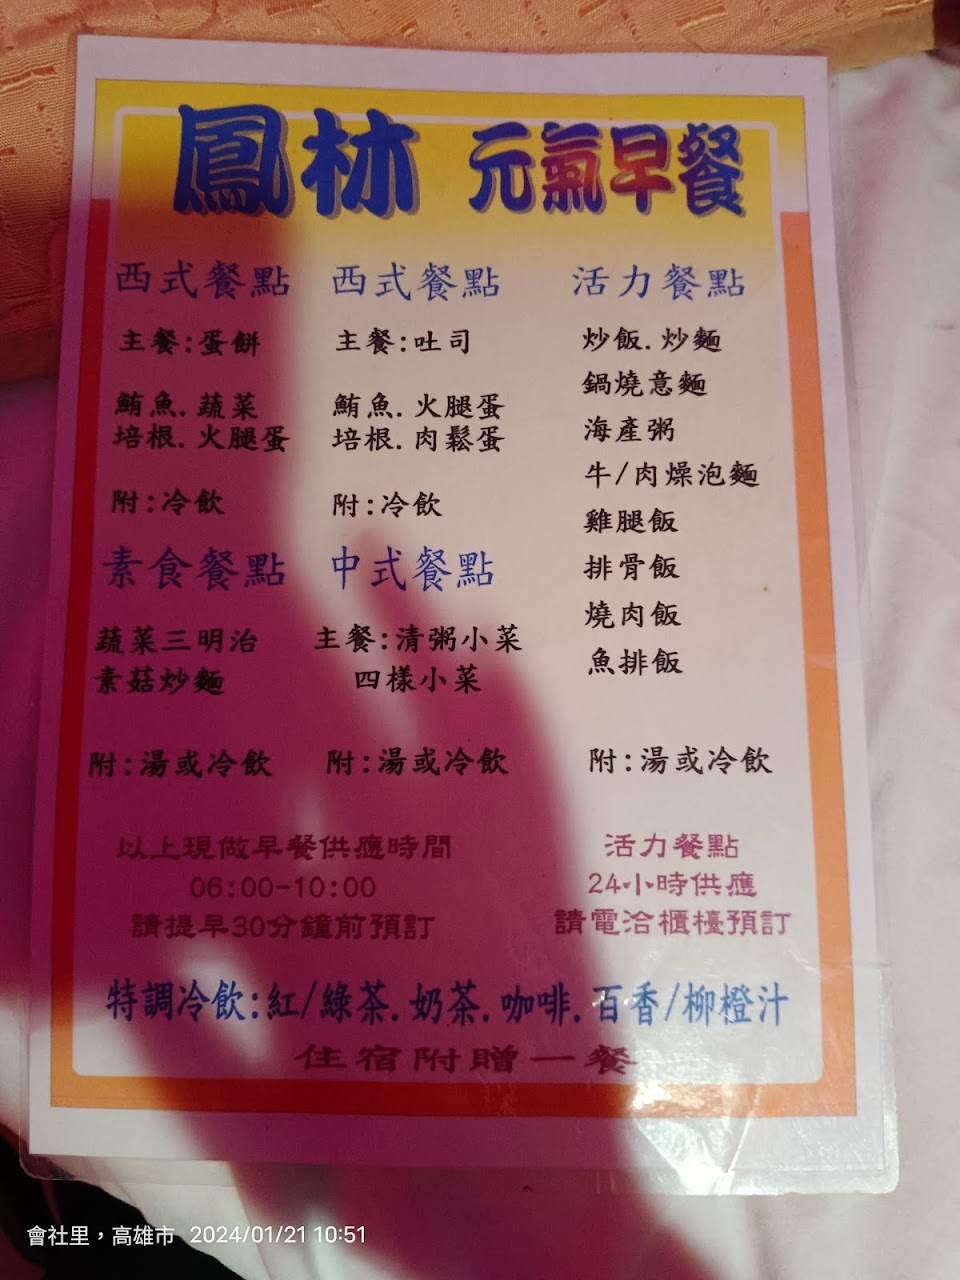 鳳林 元氣早餐
西式餐點
主餐:蛋餅
鮪魚.蔬菜
培根.火腿蛋
附:冷飲
西式餐點
主餐:吐司
鮪魚.火腿蛋
培根.肉鬆蛋
附:冷飲
活力餐點
炒飯.炒麵
鍋燒意麵
海產粥
牛/肉燥泡麵
雞腿飯
排骨飯
燒肉飯
魚排飯
附:湯或冷飲
素食餐點
蔬菜三明治
素菇炒麵
附:湯或冷飲
中式餐點
主餐:清粥小菜
四樣小菜
附:湯或冷飲
以上現做早餐供應時間
06:00-10:00
請提早30分鐘前預訂
活力餐點
24小時供應
請電洽櫃檯預訂
特調冷飲:紅/綠茶.奶茶.咖啡.百香/柳橙汁
住宿附贈一餐
會社里，高雄市 2024/01/21 10:51